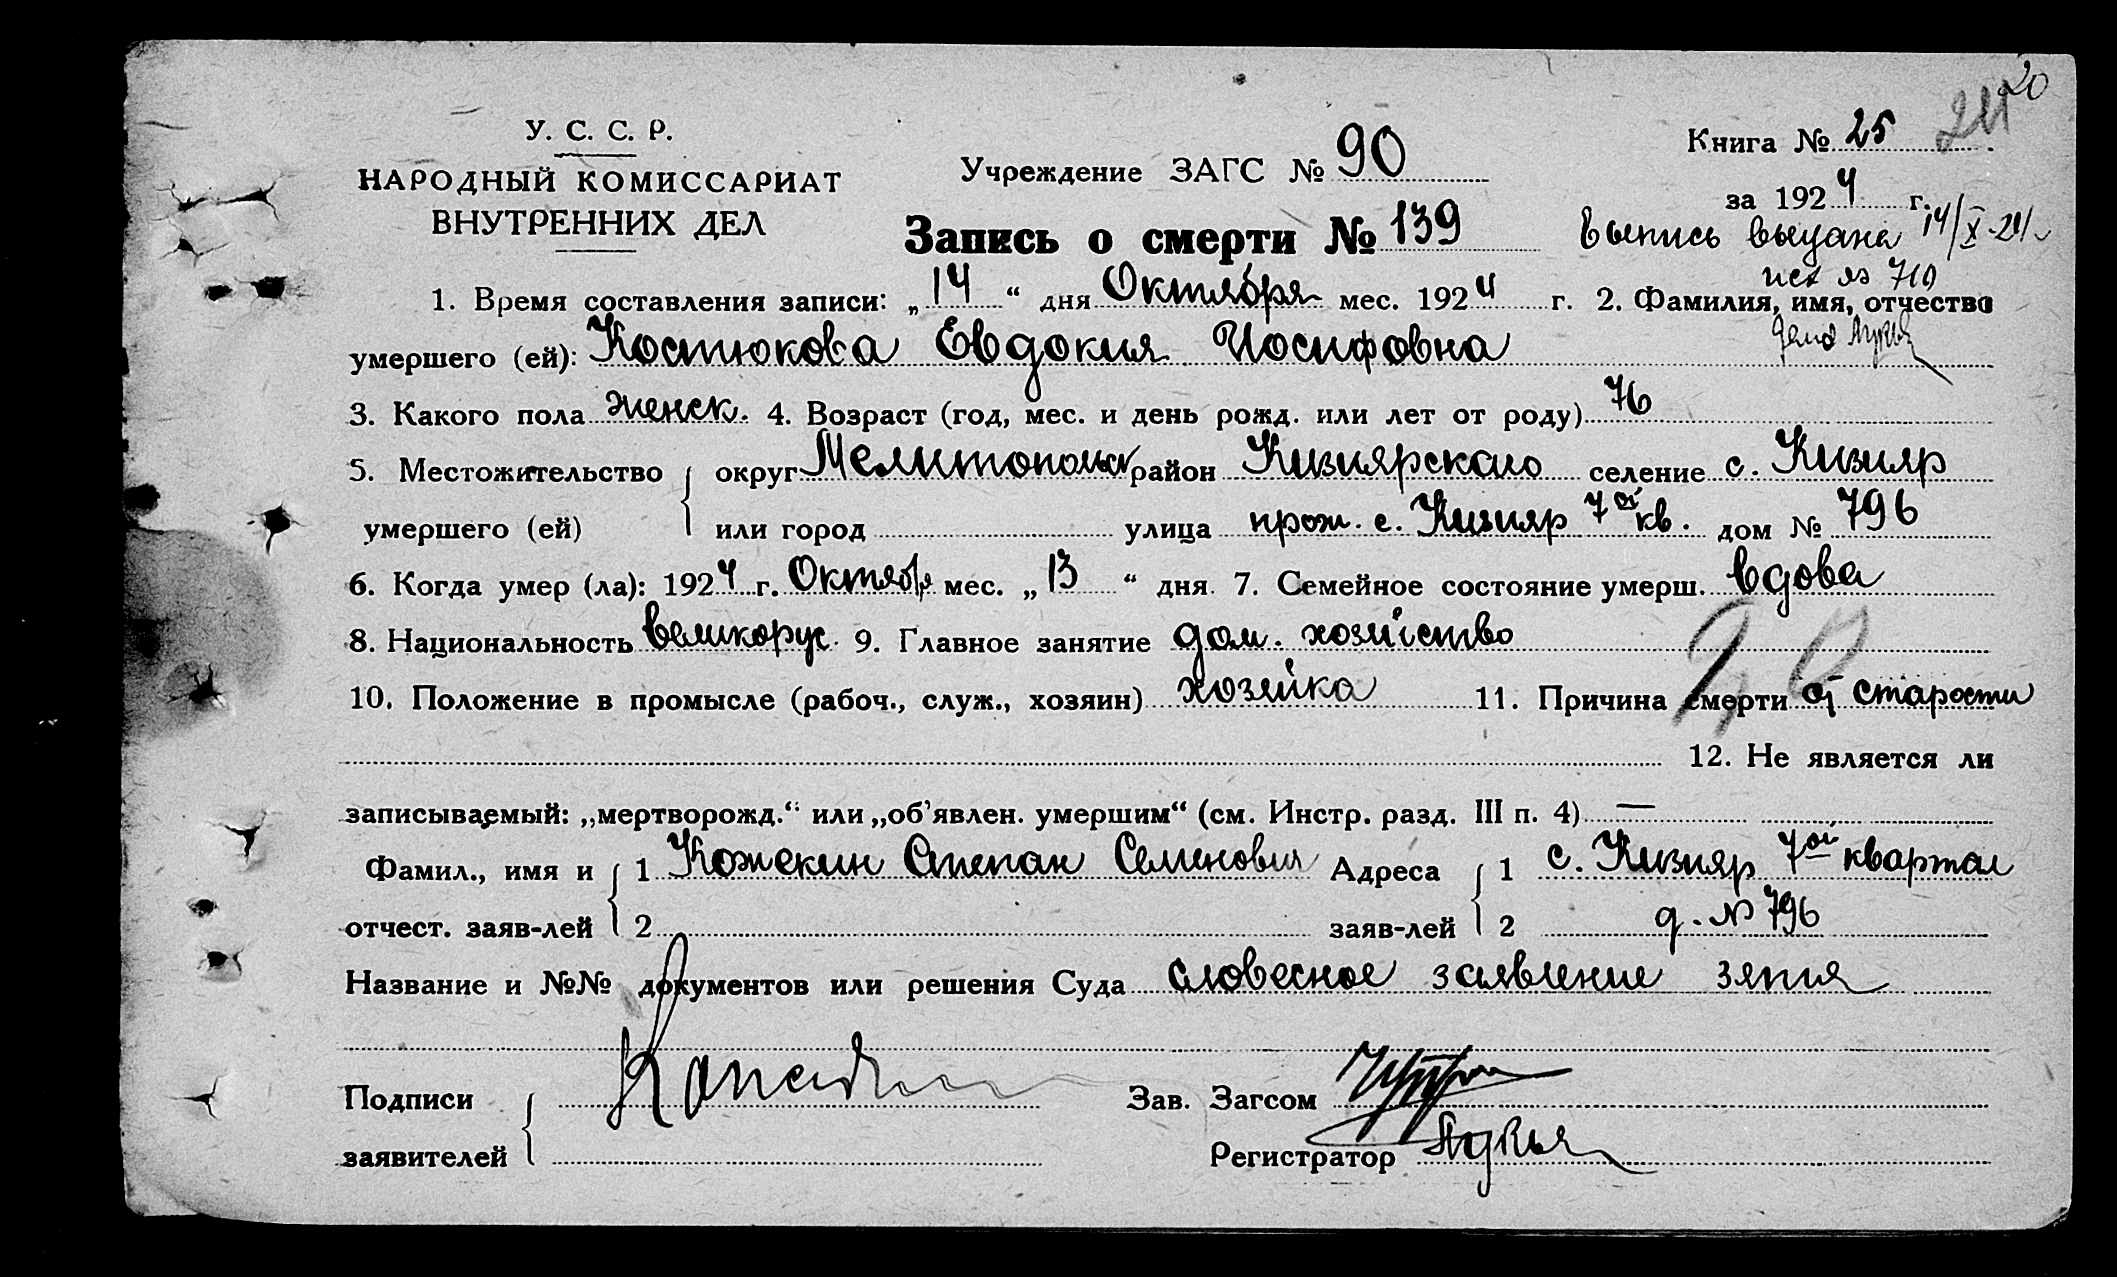 20
24
У. С. С. Р.
НАРОДНЫЙ КОМИССАРИАТ
ВНУТРЕННИХ ДЕЛ
Учреждение ЗАГС № 90
Книга № 25
за 1924 г.
Запись о смерти № 139
Выпись выдана 14/X-24
исх № 710
1. Время составления записи: „14“ дня Октября мес. 1924 г. 2. Фамилия, имя, отчество
умершего (ей): Костюкова Евдокия Иосифовна
3. Какого пола женск. 4. Возраст (год, мес. и день рожд. или лет от роду) 76
5. Местожительство округ Мелитопольск район Кизиярского селение с. Кизияр
умершего (ей) или город улица прож. с. Кизияр 7ой кв. дом № 796
6. Когда умер (ла): 1924 г. Октября мес. „13“ дня. 7. Семейное состояние умерш. вдова
8. Национальность великорус. 9. Главное занятие дом. хозяйство
10. Положение в промысле (рабоч., служ., хозяин) хозяйка 11. Причина смерти от старости
12. Не является ли
записываемый: „мертворожд.“ или „об’явлен. умершим“ (см. Инстр. разд. III п. 4) —
Фамил., имя и 1 Кожекин Степан Семенович Адреса 1 с. Кизияр 7ой квартал
отчест. заяв-лей 2 заяв-лей 2 д. № 796
Название и №№ документов или решения Суда словесное заявление зятя
Подписи Зав. Загсом
заявителей Регистратор